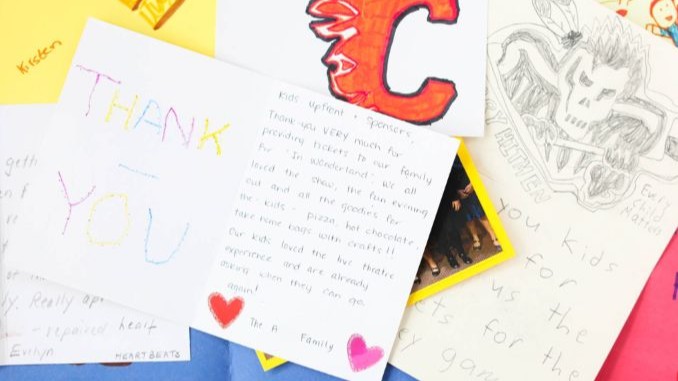 Kirsten
THANK
YOU
Kids Upfront + Sponsors,
Thank-you very much for
providing tickets to our family
for "In Wonderland". We all
loved the show, the fun evening
out and all the goodies for
the kids - pizza, hot chocolate,
take home bags with crafts!!
Our kids loved the live theatre
experience and are already
asking when they can go
again!
The A Family
C
Every
Child
Matters
HITMEN
you kids
for
us the
ets for the
gam
getti
re
ty. Really ap
- repaired heart
Evelyn
HEARTBEATS